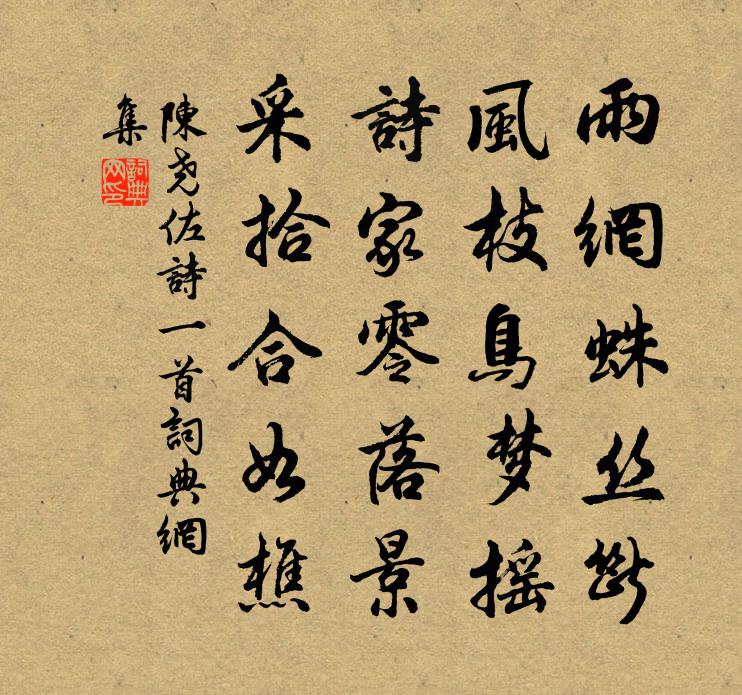 雨網蛛丝斷
風枝鳥梦摇
詩家零落景
采拾合如樵
陳尧佐詩一首詞典網
集
詞典
网印